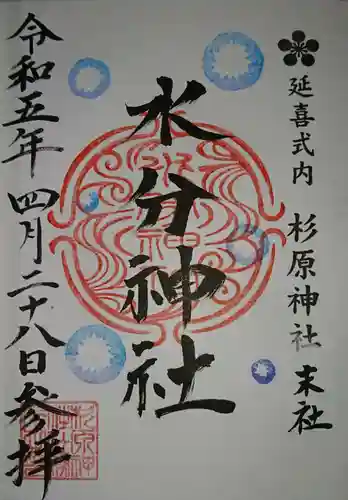 延喜式内 杉原神社 末社
水分神社
令和五年 四月二十八日参拝